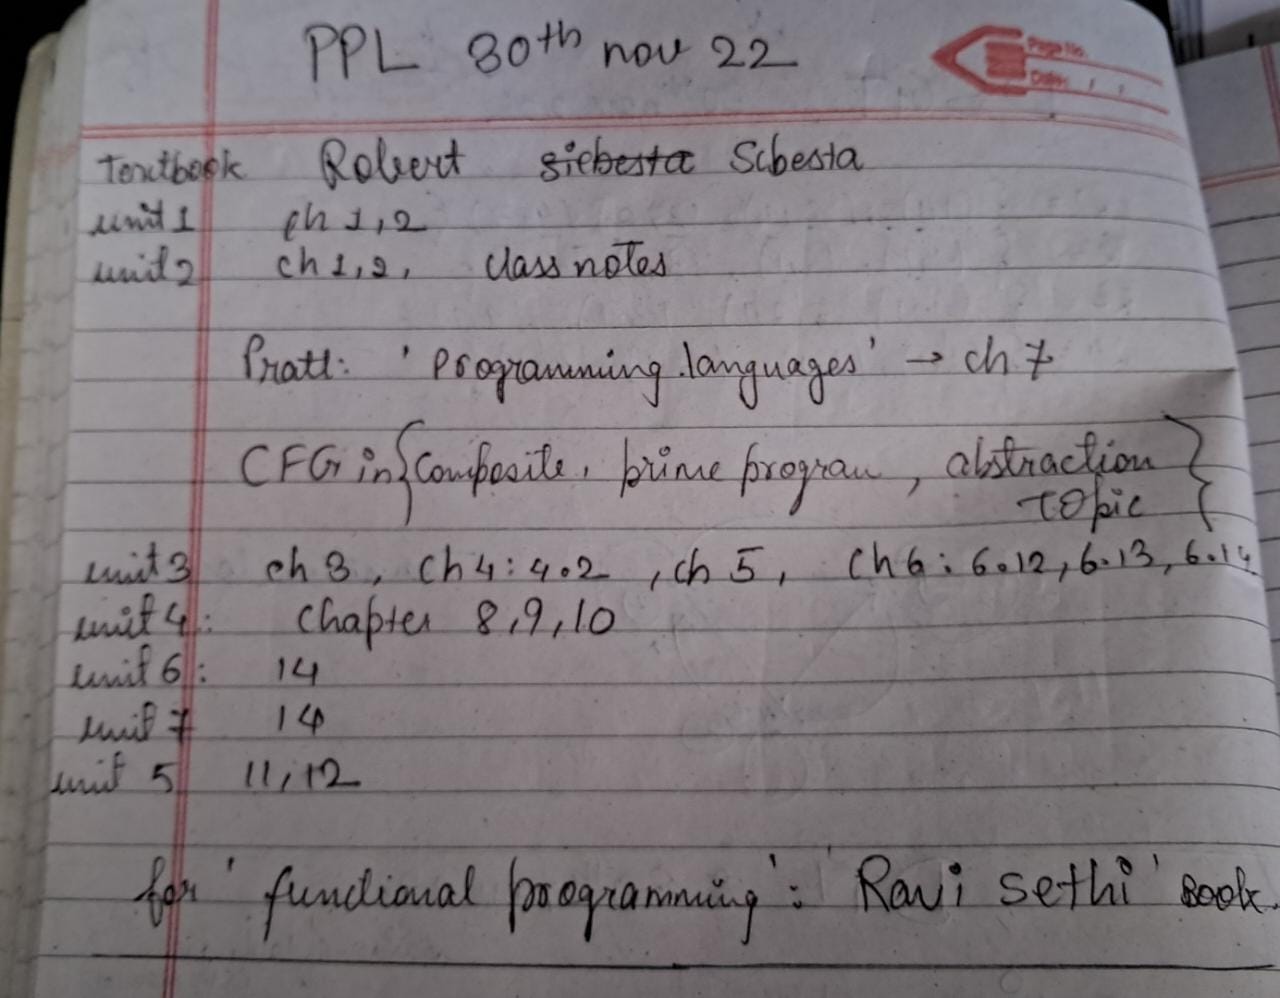 PPL 30th nov 22
Page No.
Date: / /
Textbook Robert siebesta Sebesta
unit 1 ch 1,2
unit 2 ch 1,2, class notes
Pratt: 'Programming languages' → ch 7
CFG in {Composite, prime program, abstraction
topic}
unit 3 ch 3, ch 4: 4.2, ch 5, ch 6: 6.12, 6.13, 6.14
unit 4: chapter 8,9,10
unit 6: 14
unit 7 14
unit 5 11,12
for 'functional programming': 'Ravi sethi' Book.